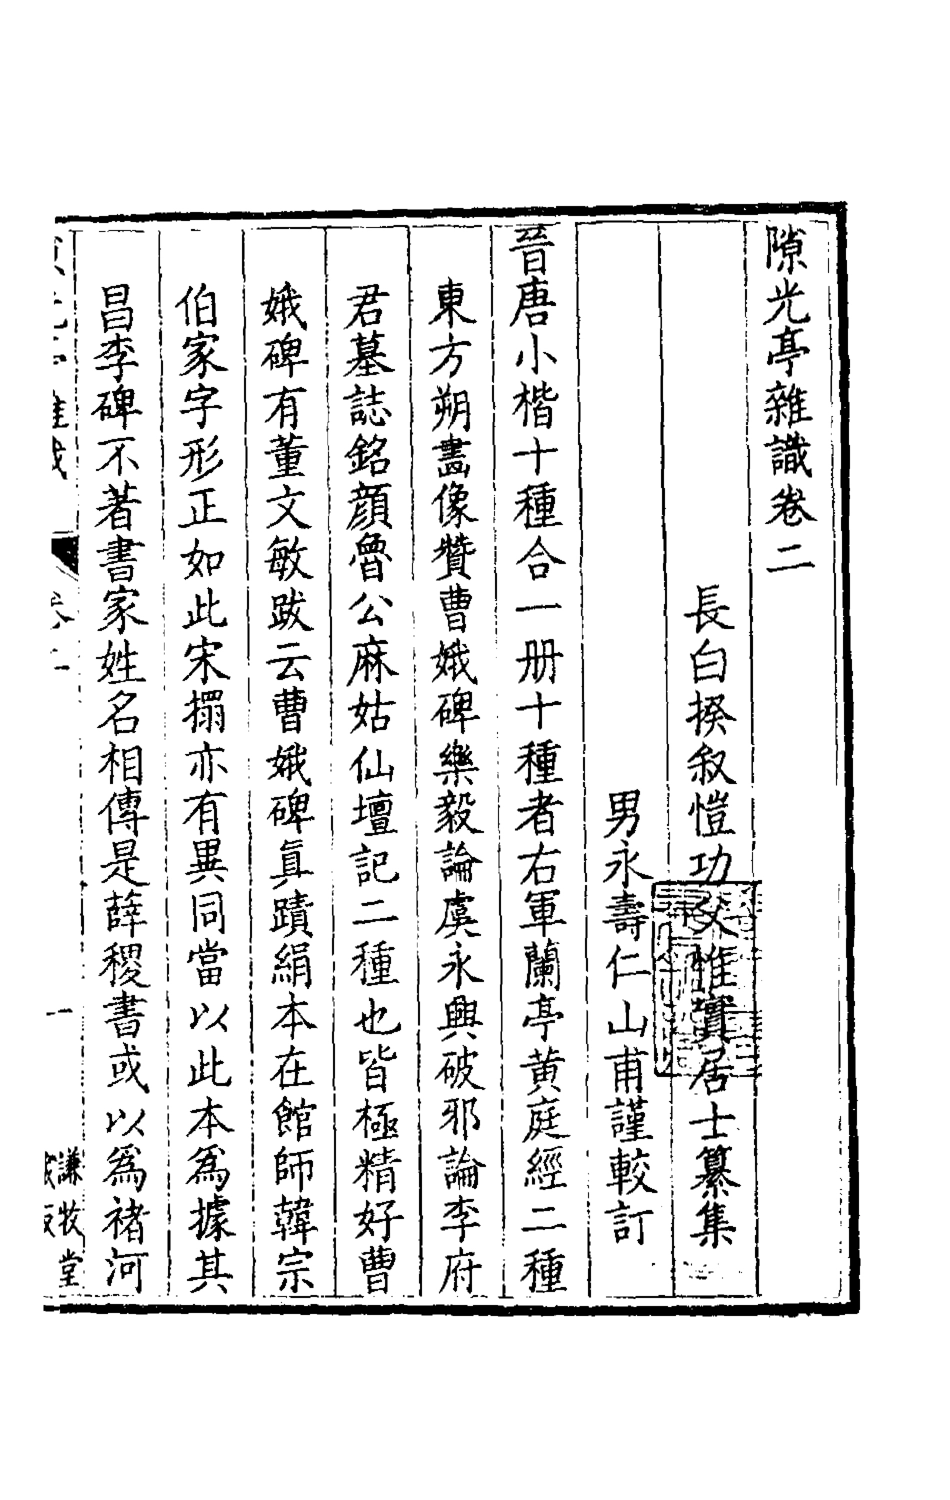 隙光亭雜識卷二
長白揆叙愷功父惟實居士纂集
男永壽仁山甫謹較訂
晉唐小楷十種合一册十種者右軍蘭亭黄庭經二種
東方朔畵像贊曹娥碑樂毅論虞永興破邪論李府
君墓誌銘顔魯公麻姑仙壇記二種也皆極精好曹
娥碑有董文敏跋云曹娥碑眞蹟絹本在館師韓宗
伯家字形正如此宋搨亦有異同當以此本爲據其
昌李碑不著書家姓名相傳是薛稷書或以爲褚河
光亭雜識 卷二 一 謙牧堂藏板